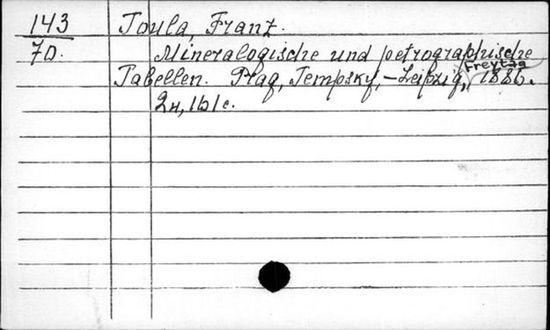 143 Toula, Franz.
70. Mineralogische und petrographische
Freytag
Tabellen. Prag, Tempsky,-Leipzig, 1886.